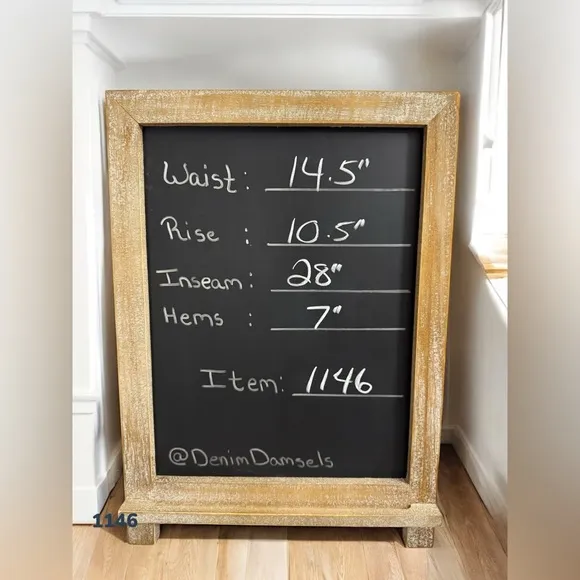 Waist: 14.5"
Rise : 10.5"
Inseam: 28"
Hems : 7"
Item: 1146
@DenimDamsels
1146